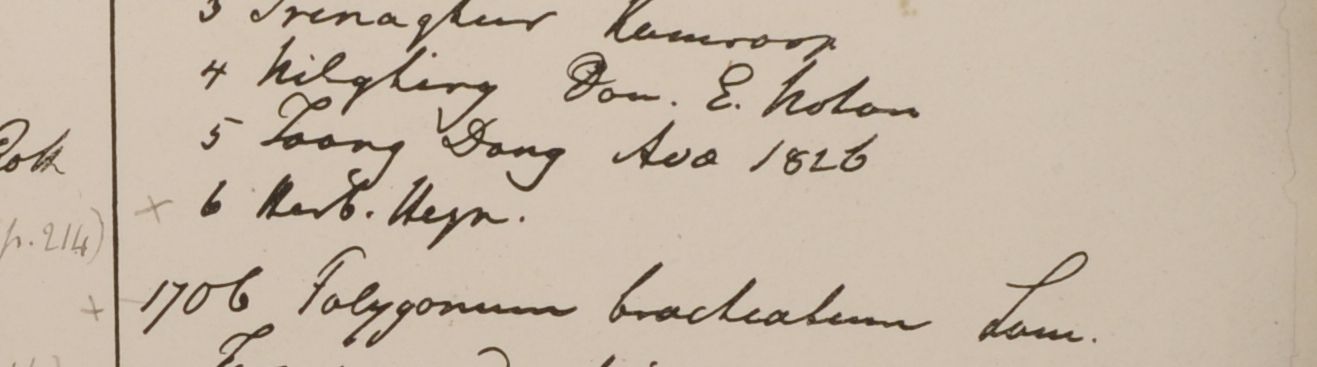 3 Srenaghur Kamroop
4 Nilghiry Dom. E. Noton
5 Toong Dong Ava 1826
x 6 Herb. Heyn.
p. 214)
x 1706 Polygonum bracteatum Lam.